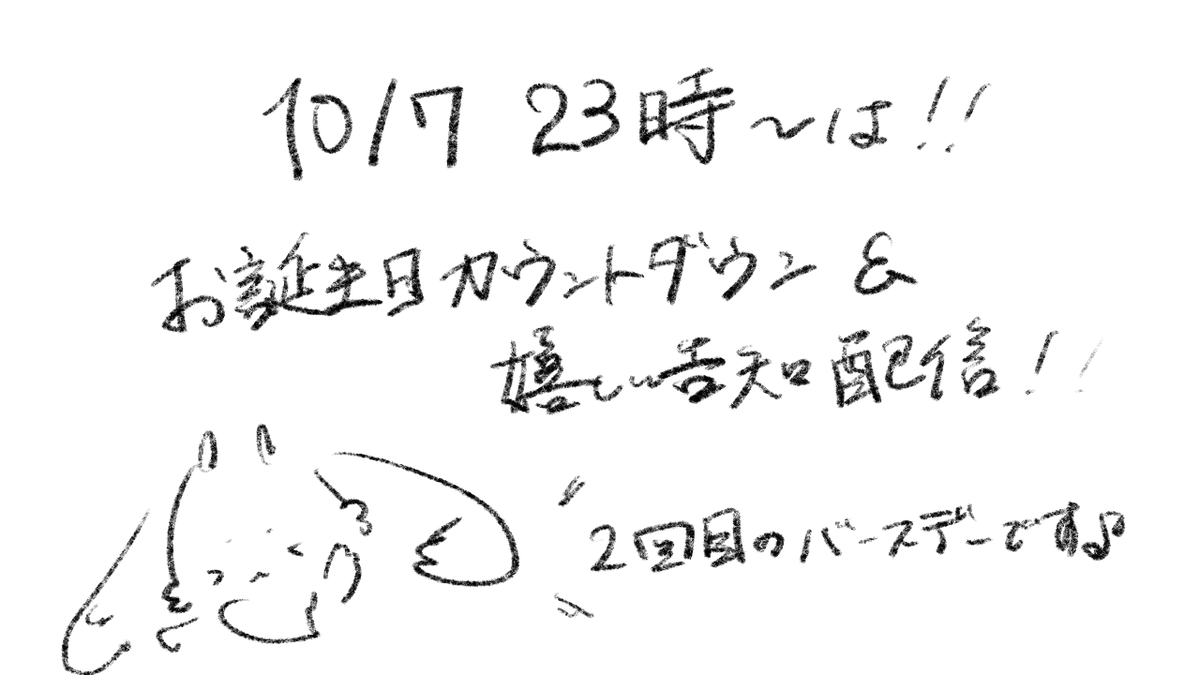 10/7 23時〜は!!
お誕生日カウントダウン&
嬉しい告知配信!!
2回目のバースデーです♪